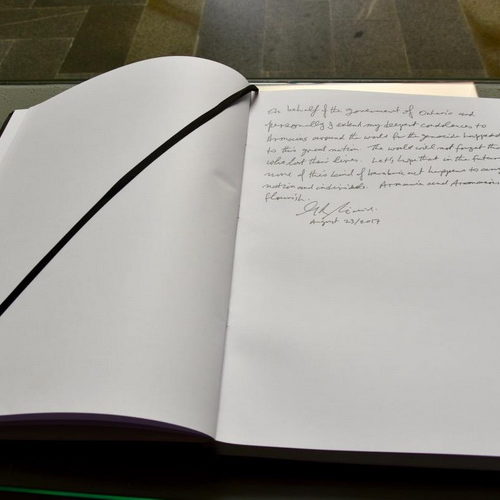 On behalf of the government of Ontario and
personally I extend my deepest condolences to
Armenians around the world for the genocide happened
to this great nation. The world will not forget
who lost their lives. Let's hope that in the future
none of this kind of barbaric act happens to any
nation and individuals. Armenia and Armenians
flourish.
August 23/2017